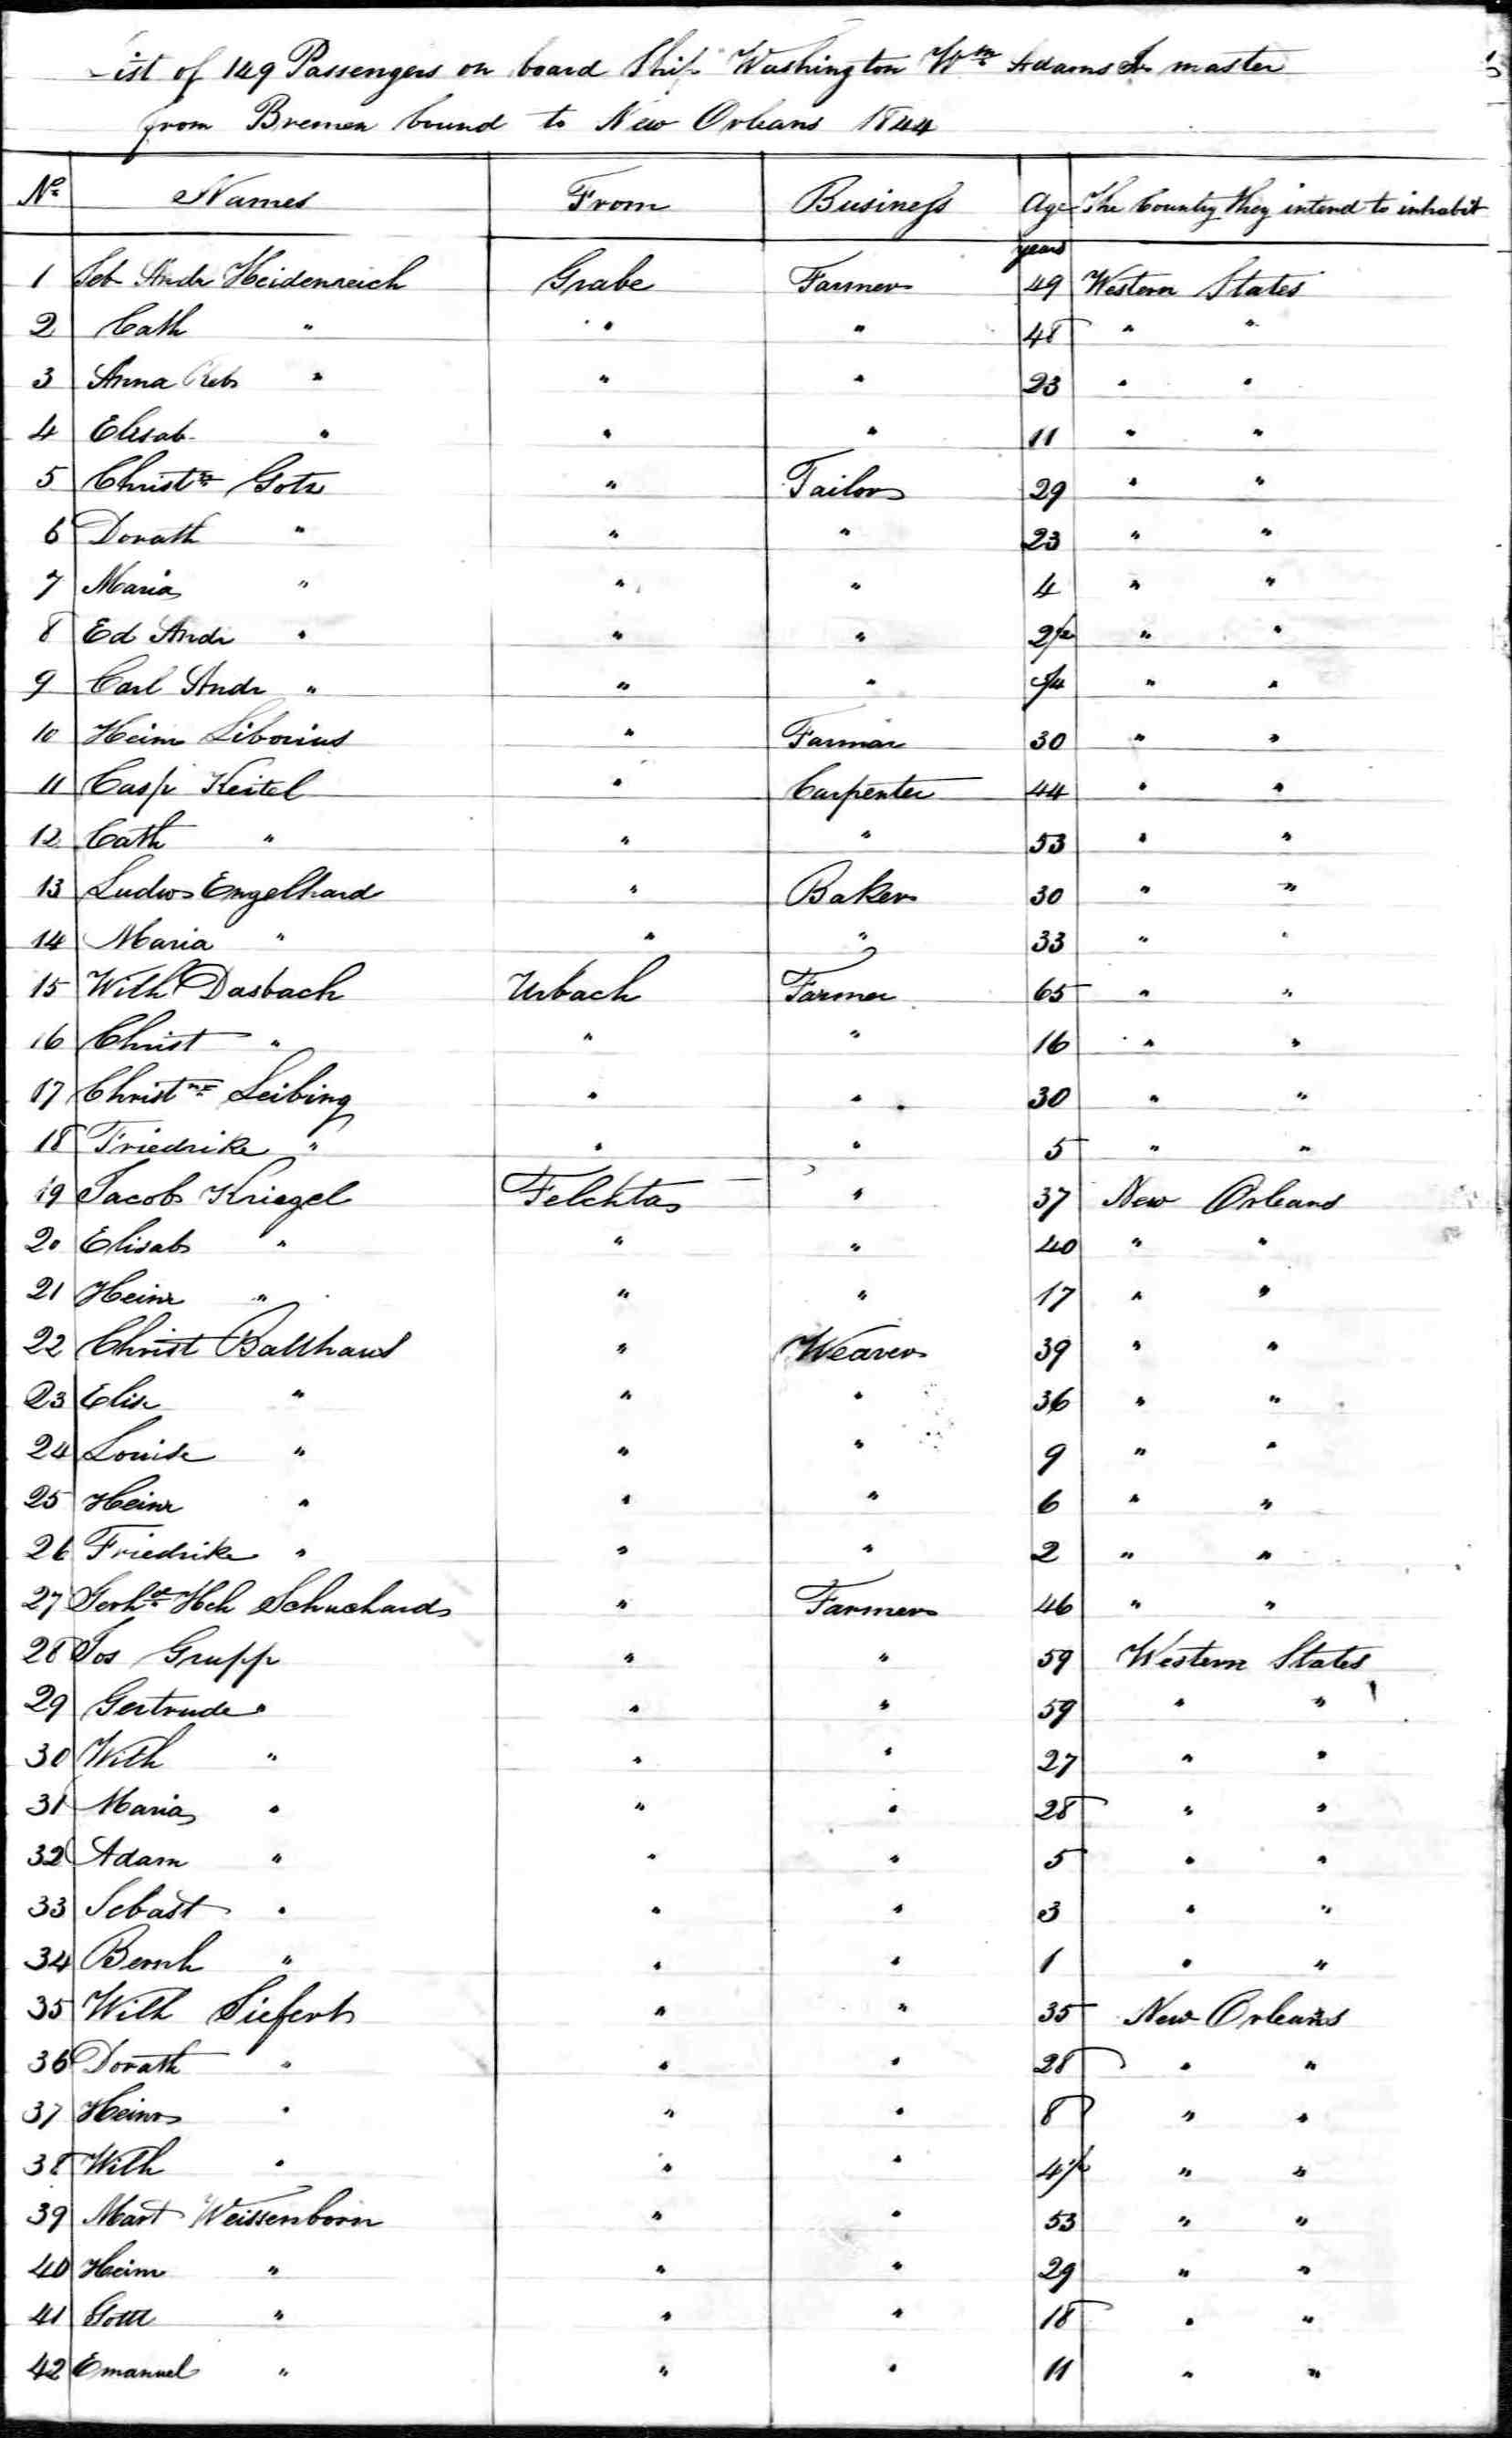 ist of 149 Passengers on board Ship Washington Wm Adams Jr master
from Bremen bound to New Orleans 1844
No Names From Business Age The Country they intend to inhabit
years
1 Seb Andr Heidenreich Grabe Farmer 49 Western States
2 Cath " " " 48 " "
3 Anna Reb " " " 23 " "
4 Elisab " " " 11 " "
5 Christn Gotz " Tailor 29 " "
6 Dorath " " " 23 " "
7 Maria " " " 4 " "
8 Ed Andr " " " 2 1/2 " "
9 Carl Andr " " " 3/4 " "
10 Heinr Liborius " Farmer 30 " "
11 Casp Keitel " Carpenter 44 " "
12 Cath " " " 53 " "
13 Ludw Engelhard " Baker 30 " "
14 Maria " " " 33 " "
15 Wilh Dasbach Urbach Farmer 65 " "
16 Christ " " " 16 " "
17 Christne Leibing " " 30 " "
18 Friedrike " " " 5 " "
19 Jacob Kriegel Felchta " 37 New Orleans
20 Elisab " " " 40 " "
21 Heinr " " " 17 " "
22 Christ Balthaus " Weaver 39 " "
23 Elise " " " 36 " "
24 Louise " " " 9 " "
25 Heinr " " " 6 " "
26 Friedrike " " " 2 " "
27 Gerhd Hch Schuchard " Farmer 46 " "
28 Jos Grupp " " 59 Western States
29 Gertrude " " " 59 " "
30 Wilh " " " 27 " "
31 Maria " " " 28 " "
32 Adam " " " 5 " "
33 Sebast " " " 3 " "
34 Bernh " " " 1 " "
35 Wilh Siefert " " 35 New Orleans
36 Dorath " " " 28 " "
37 Heinr " " " 8 " "
38 Wilh " " " 4 1/2 " "
39 Mart Weissenborn " " 53 " "
40 Heinr " " " 29 " "
41 Gottl " " " 18 " "
42 Emanuel " " " 11 " "